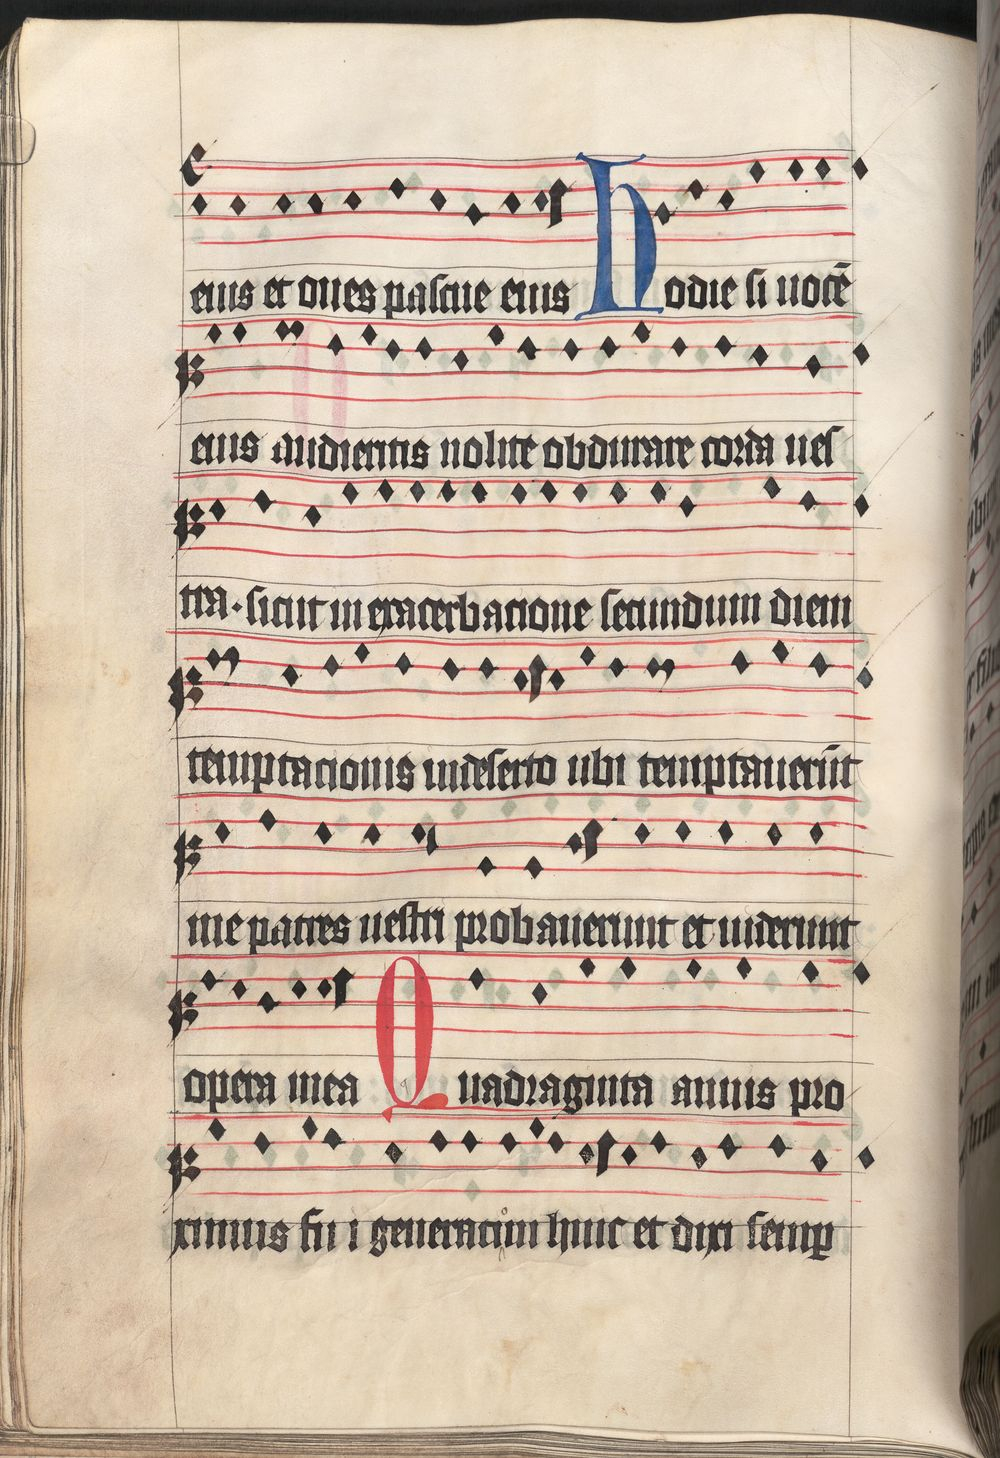 eius et oues pascue eius Hodie si uocē
eius audieritis nolite obdurare corda ues
tra · sicut in exacerbacione secundum diem
temptacionis in deserto ubi temptauerūt
me patres uestri probauerunt et uiderunt
opera mea Quadraginta annis pro
ximus fui generacioni huic et dixi semp